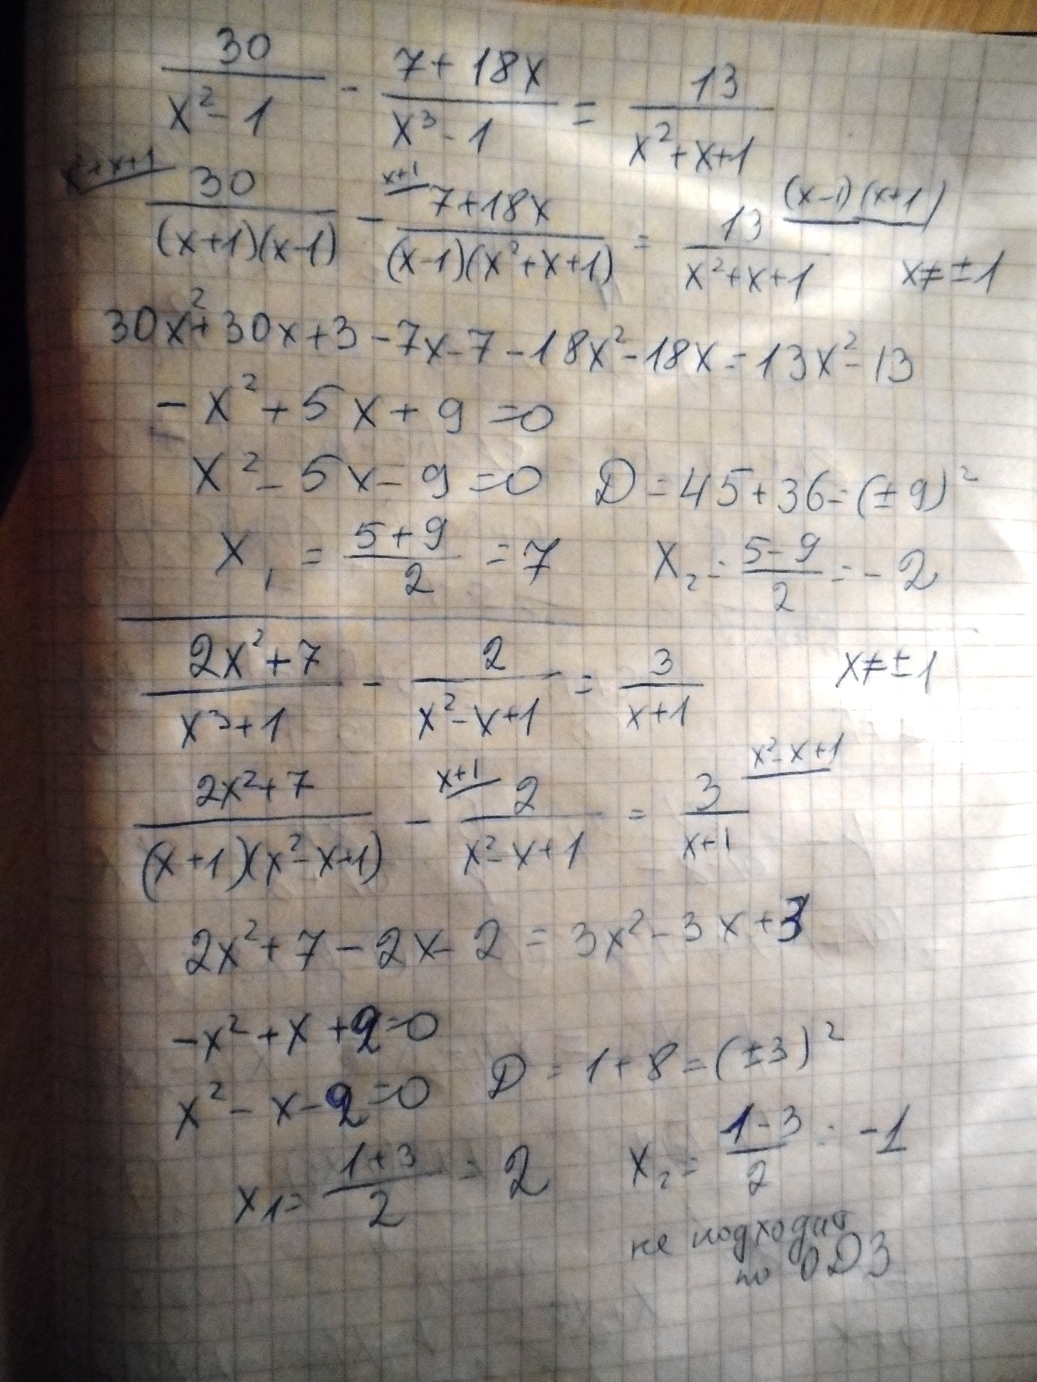 30/(x²-1) - (7+18x)/(x³-1) = 13/(x²+x+1)
x²+x+1 30/((x+1)(x-1)) - x+1 (7+18x)/((x-1)(x²+x+1)) = 13/(x²+x+1) (x-1)(x+1) x≠±1
30x²+30x+3-7x-7-18x²-18x=13x²-13
-x²+5x+9=0
x²-5x-9=0 D=45+36=(±9)²
x₁=(5+9)/2=7 x₂=(5-9)/2=-2
(2x²+7)/(x³+1) - 2/(x²-x+1) = 3/(x+1) x≠±1
(2x²+7)/((x+1)(x²-x+1)) - x+1 2/(x²-x+1) = 3/(x+1) x²-x+1
2x²+7-2x-2=3x²-3x+3
-x²+x+2=0
x²-x-2=0 D=1+8=(±3)²
x₁=(1+3)/2=2 x₂=(1-3)/2=-1
не подходит
по ОДЗ